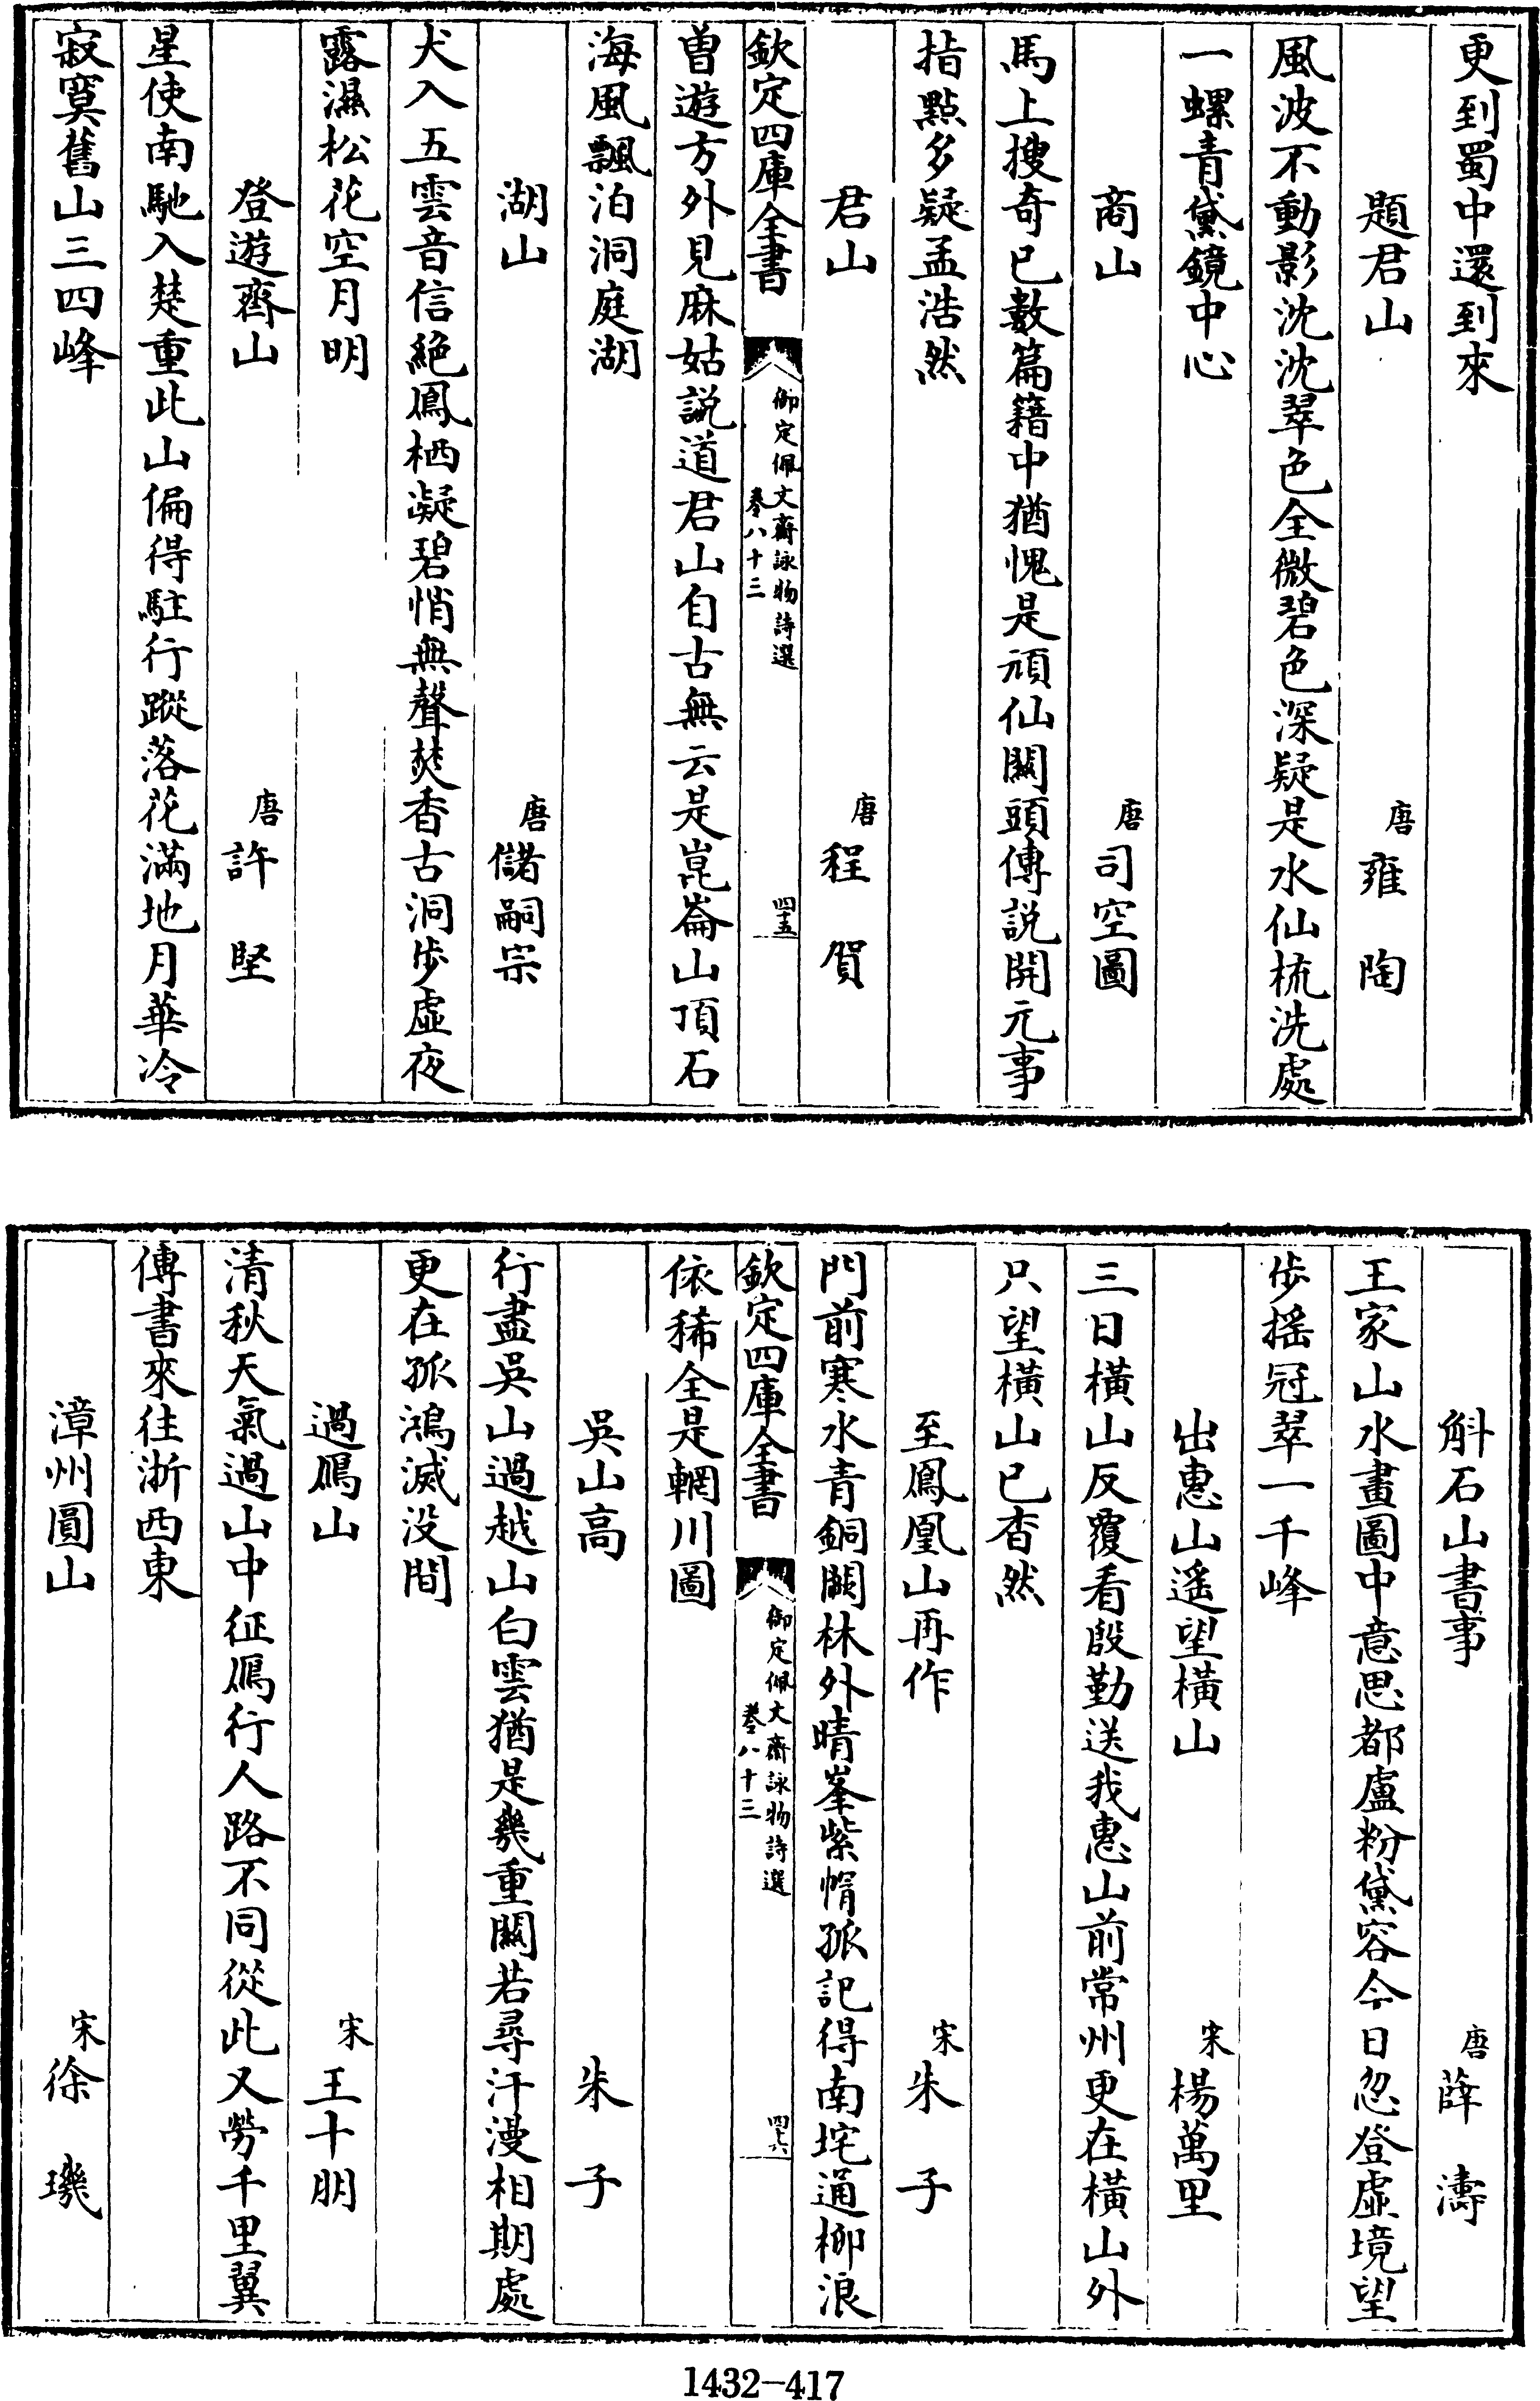 更到蜀中還到來
題君山 唐 雍陶
風波不動影沈沈翠色全微碧色深疑是水仙梳洗處
一螺青黛鏡中心
商山 唐 司空圖
馬上搜奇已數篇籍中猶愧是頑仙關頭傳説開元事
指點多疑孟浩然
君山 唐 程賀
欽定四庫全書
御定佩文齋詠物詩選
卷八十三
四十五
曽遊方外見麻姑説道君山自古無云是崑崙山頂石
海風飄泊洞庭湖
湖山 唐 儲嗣宗
犬入五雲音信絶鳳栖凝碧悄無聲焚香古洞歩虛夜
露濕松花空月明
登遊齊山 唐 許堅
星使南馳入楚重此山偏得駐行蹤落花滿地月華冷
寂寞舊山三四峰
斛石山書事 唐 薛濤
王家山水畫圖中意思都盧粉黛容今日忽登虛境望
歩搖冠翠一千峰
出惠山遥望橫山 宋 楊萬里
三日橫山反覆看殷勤送我惠山前常州更在橫山外
只望橫山已杳然
至鳳凰山再作 宋 朱子
門前寒水青銅闕林外晴峯紫㡌孤記得南垞通柳浪
欽定四庫全書
御定佩文齋詠物詩選
卷八十三
四十六
依稀全是輞川圖
吳山高 朱子
行盡吳山過越山白雲猶是幾重關若尋汗漫相期處
更在孤鴻滅没間
過鴈山 宋 王十朋
清秋天氣過山中征鴈行人路不同從此又勞千里翼
傳書來往浙西東
漳州圓山 宋 徐璣
1432-417